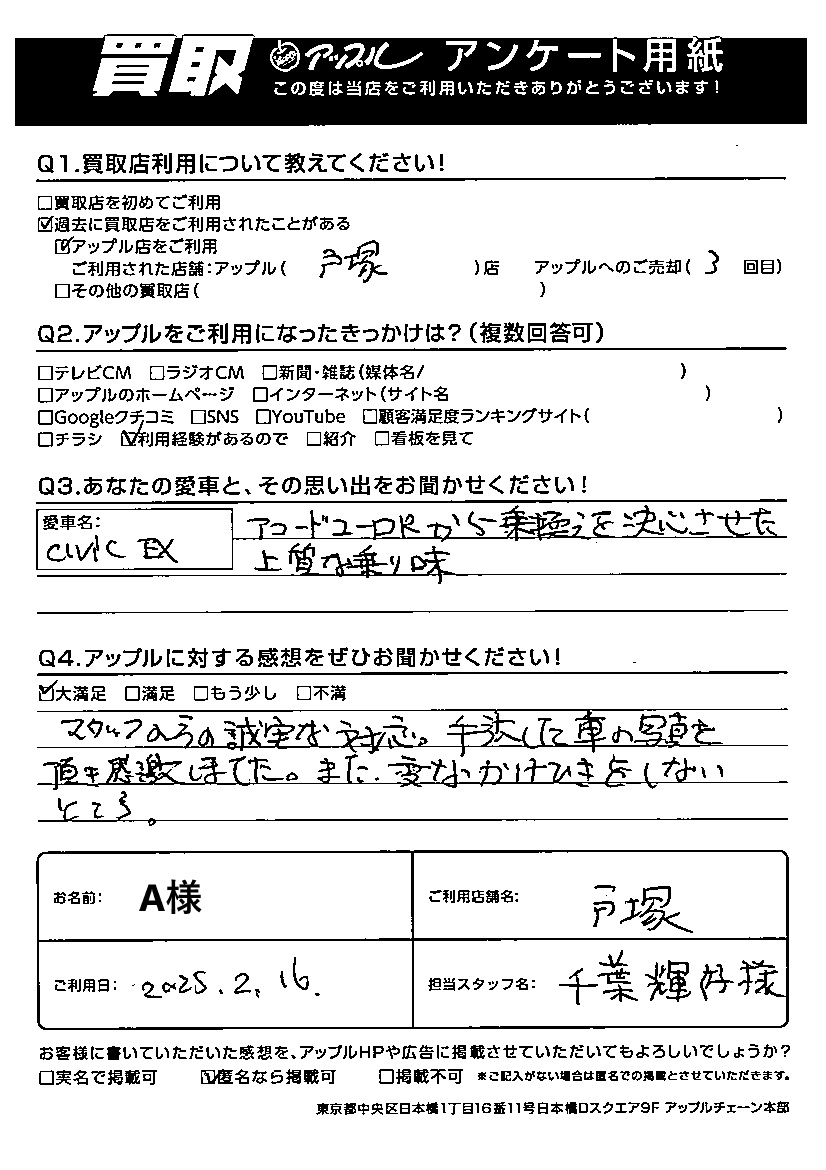 買取 アップル アンケート用紙
この度は当店をご利用いただきありがとうございます!
Q1.買取店利用について教えてください!
□買取店を初めてご利用
☑過去に買取店をご利用されたことがある
☑アップル店をご利用
ご利用された店舗:アップル( 戸塚 )店 アップルへのご売却( 3 回目)
□その他の買取店( )
Q2.アップルをご利用になったきっかけは?(複数回答可)
□テレビCM □ラジオCM □新聞・雑誌(媒体名/ )
□アップルのホームページ □インターネット(サイト名 )
□Googleクチコミ □SNS □YouTube □顧客満足度ランキングサイト( )
□チラシ ☑利用経験があるので □紹介 □看板を見て
Q3.あなたの愛車と、その思い出をお聞かせください!
愛車名:
CIVIC EX
アコードユーロRから乗換えを決心させた
上質な乗り味
Q4.アップルに対する感想をぜひお聞かせください!
☑大満足 □満足 □もう少し □不満
スタッフの方の誠実な対応。手放した車の写真を
頂き感激しました。また、変なかけひきをしない
ところ。
お名前: A様
ご利用店舗名: 戸塚
ご利用日: 2025.2.16.
担当スタッフ名: 千葉 輝 様
お客様に書いていただいた感想を、アップルHPや広告に掲載させていただいてもよろしいでしょうか?
□実名で掲載可 ☑匿名なら掲載可 □掲載不可 ※ご記入がない場合は匿名での掲載とさせていただきます。
東京都中央区日本橋1丁目16番11号日本橋ロスクエア9F アップルチェーン本部